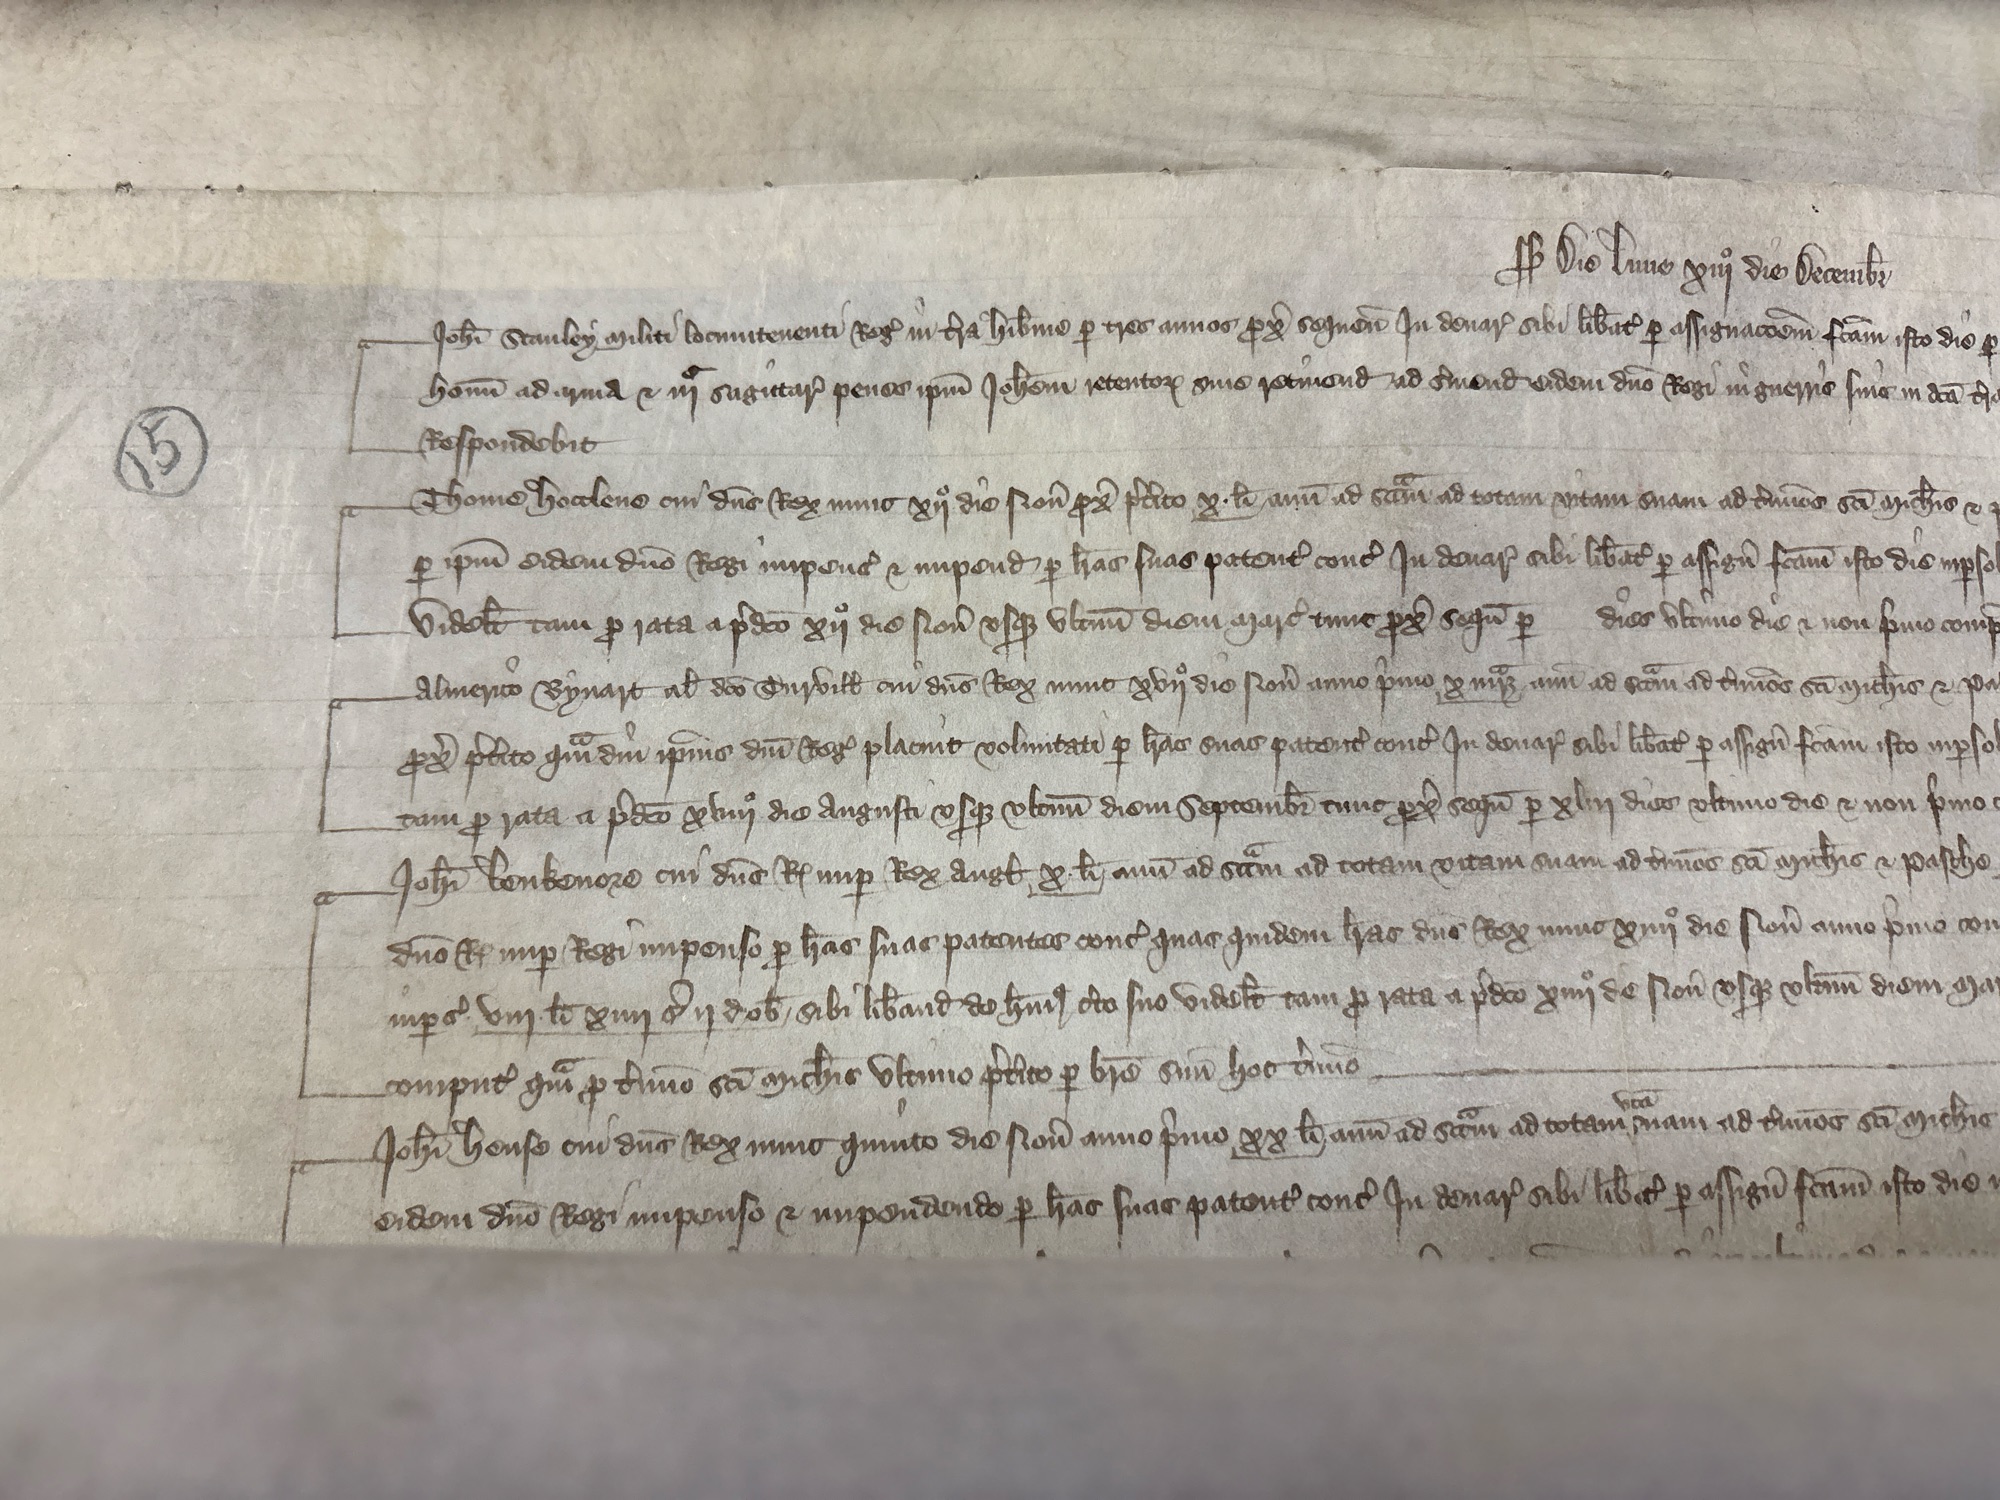 Die lune xiijº die Decembr
Joħi Stanley militi locumtenenti Reg̃ in t̃ra hiƀnie p tres annos p̱x̃ sequeñ In denar̃ sibi liƀat̃ p assignac̃oem̃ fc̃am isto die p
hom̃ ad arma & iijᶜ sagittar̃ penes ip̃m Joħem retentor̃ sine retinend ad s̃uiend eidem dño Regi in guerris suis in dc̃a t̃ra
Respondebit
15
Thome hoccleue cui dñs Rex nunc xijº die Noũ p̱x̃ p̃t̃ito x li anñ ad sc̃c̃am ad totam vitam suam ad t̃mĩos sc̃i Mich̃is & p
p ip̃m eidem dño Regi impens̃ & impend p lr̃as suas patent̃ conc̃ In denar̃ sibi liƀat̃ p assigñ fc̃am isto die in p̱sol
videlt̃ tam p̱ rata a p̃dc̃o xijº die Noũ vsq̃ vltim̃ diem Marc̃ tunc p̱x̃ seqũ p dies vltimo die & non p̃mo comp
Almerico Bynart at̃ dc̃o Turvill cui dñs Rex nunc xvijº die Noũ anno p̃mo x marc̃ anñ ad sc̃c̃am ad t̃mĩos sc̃i Mich̃is & Pa
p̱x̃ p̃t̃ito qm̃diu ip̃ius dñi Reg̃ placuit voluntati p lr̃as suas patent̃ conc̃ In denar̃ sibi liƀat̃ p assigñ fc̃am isto in p̱sol
tam p̱ rata a p̃dc̃o xviijº die Augusti vsq̃ vltim̃ diem Septembr̃ tunc p̱x̃ seqũ p xliij dies vltimo die & non p̃mo c
Joħi leukenore cui dñs R̃ nup̱ Rex Angt̃ x li anñ ad sc̃c̃am ad totam vitam suam ad t̃mĩos sc̃i Mich̃is & Pasche
dño R̃ nup̱ Regi impenso p lr̃as suas patentes conc̃ quas quidem lr̃as dñs Rex nunc xiiijº die Noũ anno p̃mo con
inp̱s̃ viij li xiiij s̃ ij d oƀ sibi liƀand de hm̃i c̃to suo videlt̃ tam p̱ rata a p̃dc̃o xiiijº de Noũ vsq̃ vltim̃ diem Mar
comput̃ qm̃ p̱ t̃mĩo sc̃i Mich̃is vltimo p̃t̃ito p br̃e suũ hoc t̃mĩo
Joħi hense cui dñs Rex nunc quinto die Noũ anno p̃mo xx li anñ ad sc̃c̃am ad totam vitã suam ad t̃mĩos sc̃i Mich̃is
eidem dño Regi impenso & impendendo p lr̃as suas patent̃ conc̃ In denar̃ sibi liƀat̃ p assigñ fc̃am isto die i